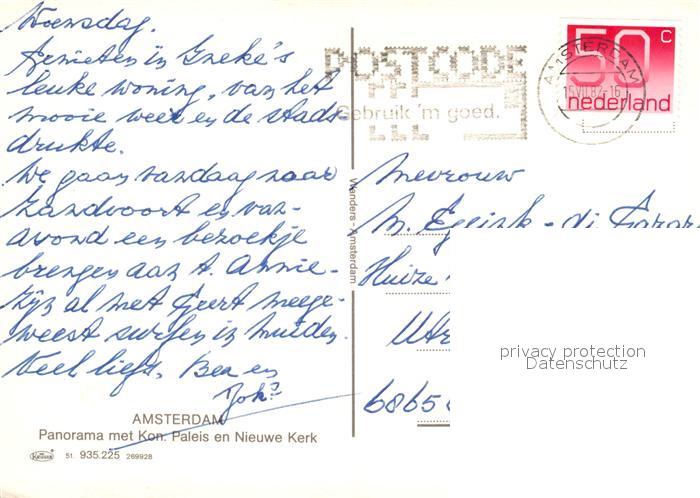 Woensdag.
Genieten in Ineke's
leuke woning, van het
mooie weer en de stads
drukte.
We gaan vandaag naar
Zandvoort en van-
avond een bezoekje
brengen aan t. Annie-
Zijn al met Geert meege-
weest surfen in Muiden.
Veel liefs, Bea en
Joh?
AMSTERDAM
Panorama met Kon. Paleis en Nieuwe Kerk
51. 935.225 269928
Vlanders - Amsterdam
POSTCODE
Gebruik 'm goed.
AMSTERDAM
15 VII 82-16
50 C
nederland
Mevrouw
M. - di
Huize
Utr
6865
privacy protection
Datenschutz